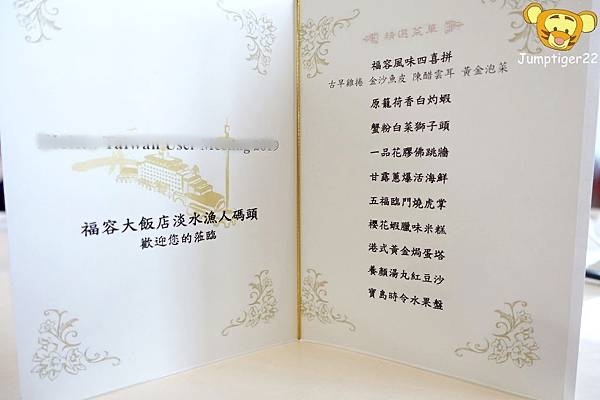 Taiwan User Meeting 2019
福容大飯店淡水漁人碼頭
歡迎您的蒞臨
精選菜單
福容風味四喜拼
古早雞捲 金沙魚皮 陳醋雲耳 黃金泡菜
原籠荷香白灼蝦
蟹粉白菜獅子頭
一品花膠佛跳牆
甘露蔥爆活海鮮
五福臨門燒虎掌
櫻花蝦臘味米糕
港式黃金焗蛋塔
養顏湯丸紅豆沙
寶島時令水果盤
Jumptiger22